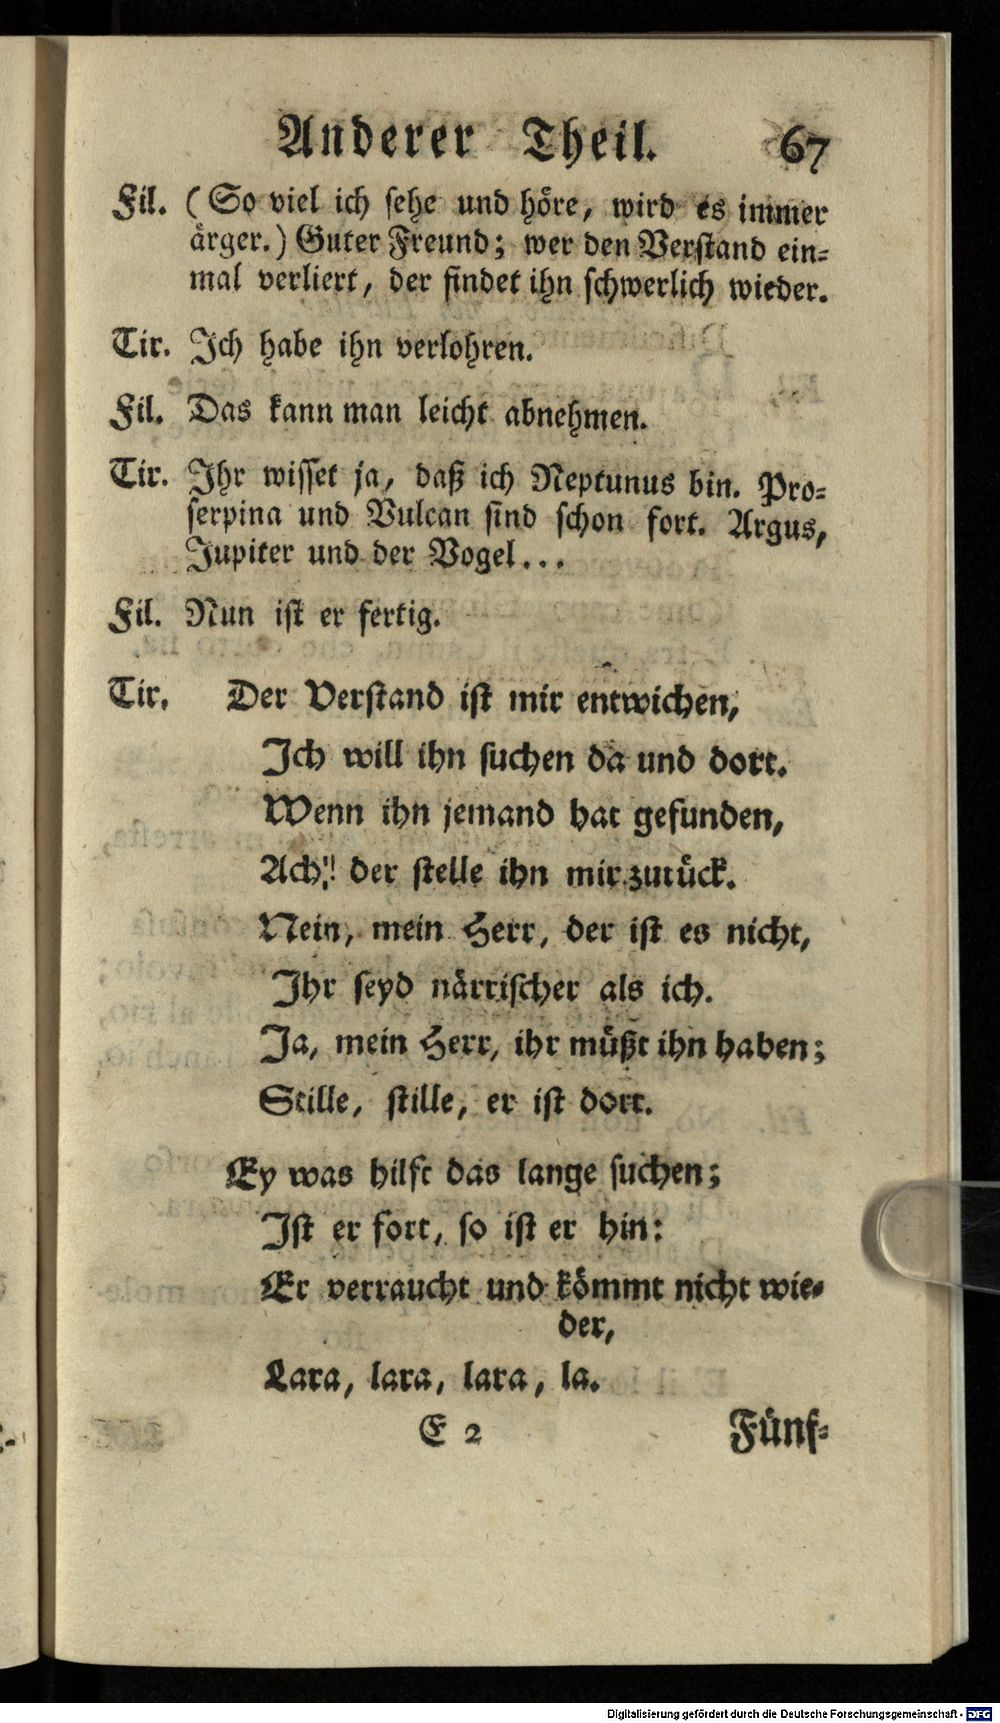 Anderer Theil. 67
Fil. (So viel ich sehe und höre, wird es immer
ärger.) Guter Freund; wer den Verstand ein-
mal verliert, der findet ihn schwerlich wieder.
Tir. Ich habe ihn verlohren.
Fil. Das kann man leicht abnehmen.
Tir. Ihr wisset ja, daß ich Neptunus bin. Pro-
serpina und Vulcan sind schon fort. Argus,
Jupiter und der Vogel...
Fil. Nun ist er fertig.
Tir. Der Verstand ist mir entwichen,
Ich will ihn suchen da und dort.
Wenn ihn jemand hat gefunden,
Ach! der stelle ihn mir zurück.
Nein, mein Herr, der ist es nicht,
Ihr seyd närrischer als ich.
Ja, mein Herr, ihr müßt ihn haben;
Stille, stille, er ist dort.
Ey was hilft das lange suchen;
Ist er fort, so ist er hin:
Er verraucht und kömmt nicht wie-
der,
Lara, lara, lara, la.
E 2 Fünf-
Digitalisierung gefördert durch die Deutsche Forschungsgemeinschaft - DFG